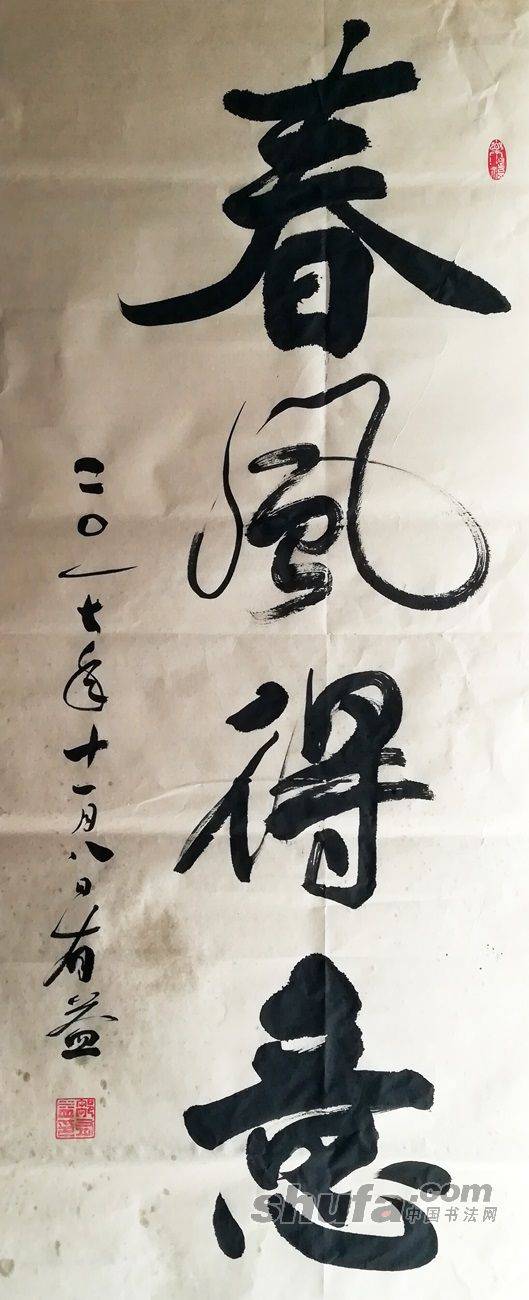 春風得意
二〇一七年十一月八日有益
shufa.com
中国书法网